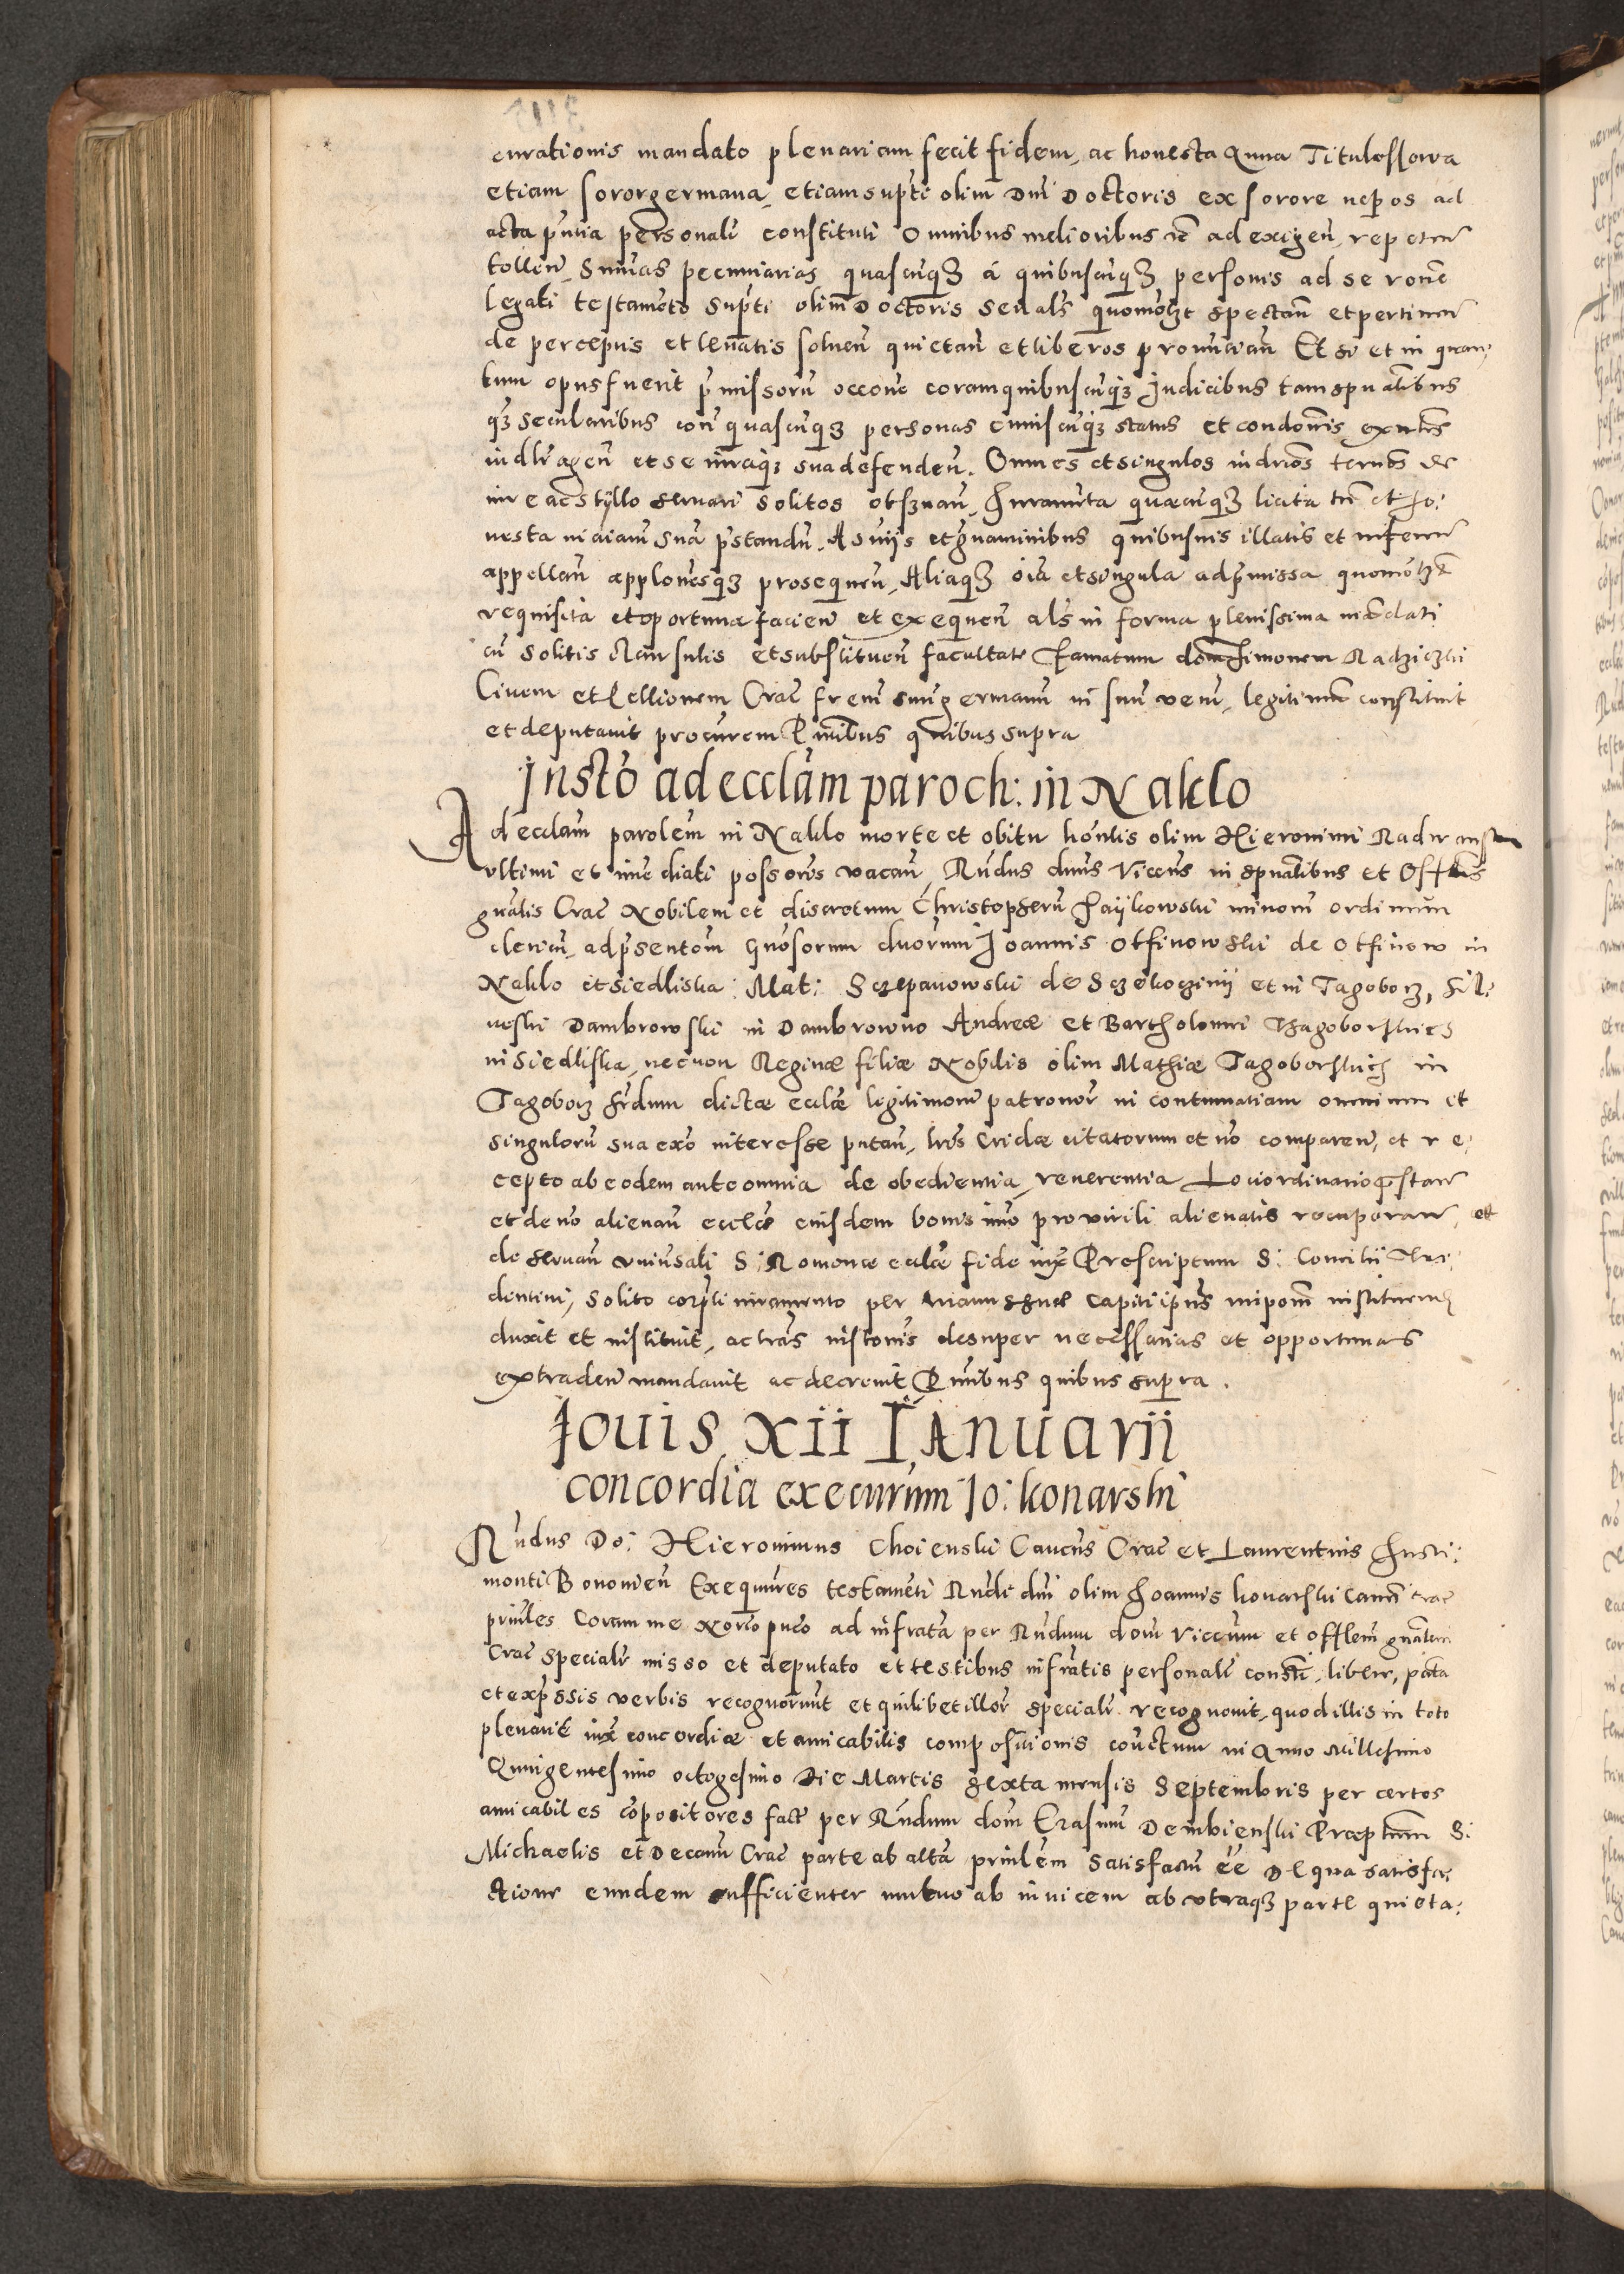 curationis mandato plenariam fecit fidem, ac honesta Anna Tituleskowa
etiam soror germana, etiam supti olim Dni Doctoris ex sorore nepos ad
acta pntia personalr constituti Omnibus melioribus ad exigen, repeten
tollen, Sumas pecuniarias quascunq3 à quibuscunq3 personis ad se rone
legati testamento supti olim Doctoris Seu als quomolt spectan et pertinen
de perceptis et levatis solven quietan et liberos pronuncian Et si et in quan,
tum opus fuerit pmissoru occone coram quibuscunq3 Judicibus tam spualibus
q3 secularibus con quascunq3 personas cuiuscunq3 status et condonis exntes
indlr agen et se iuraq3 sua defenden. Omnes et singulos indrios ternos de
iure ac styllo servari solitos observan, Juramta quaecunq3 licita tn et ho:
nesta in aiam sua pstandu. A suijs et gravaminibus quibusuis illatis et inferen
appellan applonesq3 prosequen, Aliaq3 oia et singula ad pmissa quomolt
requisita et oportuna facien et exequen als in forma plenissima mandati
cu solitis clausulis et substituen facultate Famatum dom Simonem Radziczki
Civem et Pellionem Crac frem suu germanu in suu veru, legitimu constituit
et deputavit procurem Pntibus quibus supra
Insto ad ecclam paroch: in Naklo
Ad ecclam parolem in Naklo morte et obitu hontis olim Hieronimi Radwansky
ultimi et imediati possoris vacan, Rndus dnus Viccus in spualibus et Offlis
gnalis Crac Nobilem et discretum Christopherū Paijkowski minorū ordinum
clericu, ad psentom Gnosorum duorum Joannis Otfinowski de Otfinow in
Naklo et Siedliska: Mat: Sczepanowski de Sczekoczinij et in Tagoborz, Sil:
neski Dambrowski in Dambrowno Andreae et Bartholomei Thagoborskich
in Siedliska, necnon Reginae filiae Nobilis olim Mathiae Tagoborskich in
Tagoborz Srdum dictae ecclae legitimoru patronor in contumatiam omnium et
singuloru sua exo interesse putan, lris Cridae citatorum et no comparen, et re:
cepto ab eodem ante omnia de obedientia, reverentia Loci ordinario pstan
et de no alienan eccles eiusdem bonis imo pro virili alienatis recuperan, et
de servan universali S: Romanae ecclae fide iux Prescriptum S: Concilii Tri:
dentini, solito corpli iuramento per Manus suae capiti ipsius impom instituend
duxit et instituit, ac lras instonis desuper necessarias et opportunas
extraden mandavit ac decrevit Pntibus quibus supra.
Jouis XII IAnuarii
concordia execurum Jo: konarski
Rndus Do: Hieronimus Choienski Cancus Crac et Laurentius Justi:
monti Bononien Exequutores testamenti Rndi dni olim Joannis konarski Canci Crac
prinles Coram me Norio puco ad infrata per Rndum dom Viccum et Offlem gnalem
Crac specialr misso et deputato et testibus infratis personalr consti, libere, pata
et expssis verbis recognorunt et quilibet illor specialr recognovit, quod illis in toto
plenarie iux concordiae et amicabilis compositionis convctum in Anno Millesimo
Quingentesimo octogesimo Die Martis sexta mensis Septembris per certos
amicabiles compositores fact per Rndum dom Erasmu Dembienski Praeptum S:
Michaelis et Decanu Crac parte ab alta prinlem satisfactu ee De qua satisfa:
ctione eundem sufficienter mutuo ab invicem ab utraq3 parte quieta: